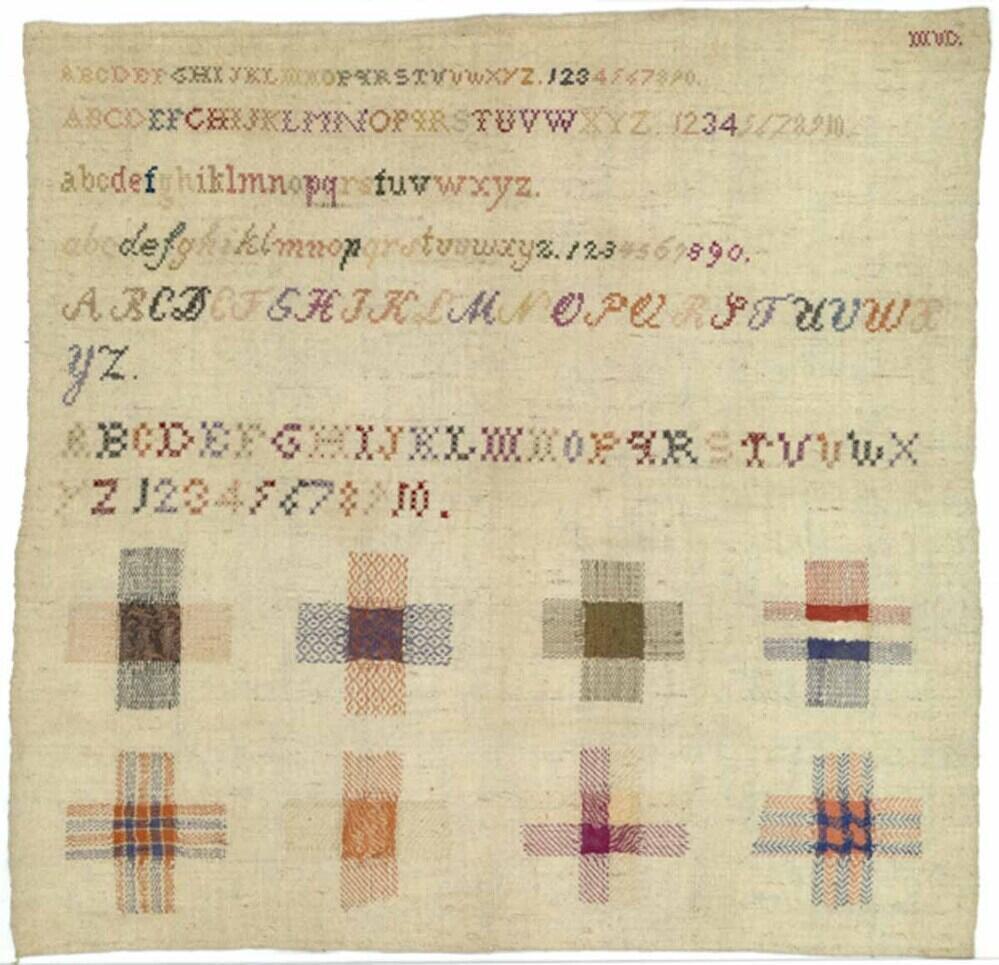 MVD.
ABCDEFGHIJKLMNOPQRSTVVWXYZ.1234567890.
ABCDEFGHIJKLMNOPQRSTUVWXYZ. 12345678910.
abcdefghiklmnopqrstuvwxyz.
abcdefghiklmnopqrstuvwxyz.1234567890.
ABCDEFGHIKLMNOPQRSTUVWX
YZ.
ABCDEFGHIJKLMNOPQRSTVVWX
YZ 12345678910.